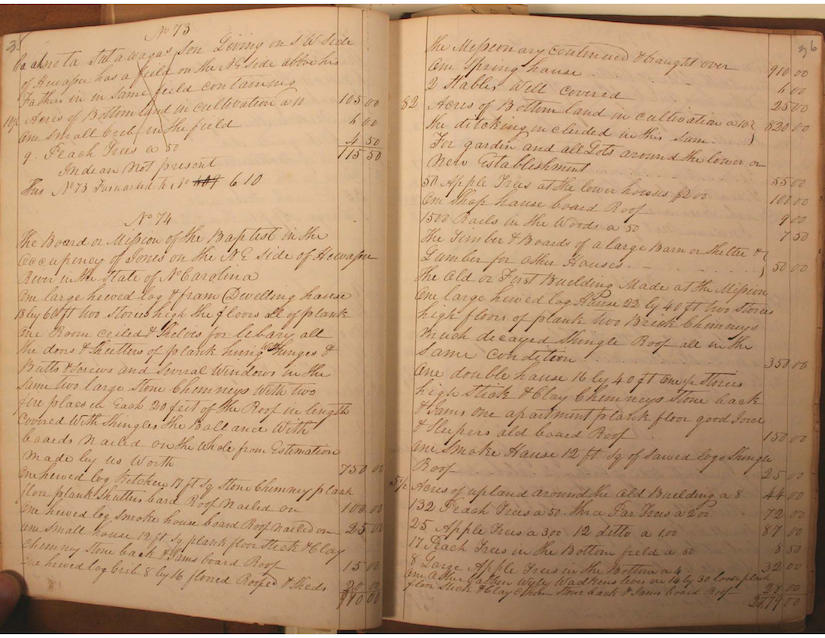 35
No 73
son Living on S W Side
of Hewassee has a field on the N E side above his
Father in in same field containing
10½ Acres of Bottom land in cultivation a 10 105 00
One small Crib in the field 6 00
9 Peach Trees a 50 4 50
Indean Not present 115 50
This No 73 610
No 74
The Board or Mission of the Baptist in the
Occupency of Jones on the N E Side of Hewassee
River in the State of N Carolina
One large hewed log & fram Dwelling house
18 by 60 ft two Stories high the floors of plank
the Room ceiled & Shelves for all
the dors & Shutters of plank hung Hinges &
Butts & Screws and Several Windows in the
Same two large Stone Chemneys With two
fire places in Each 20 feet of the Roof in length
Covered With Shingles the Ballance With
boards Nailed on the Whole from Estemation
made by us Worth 750 00
One hewed log Kitchen 18 ft Sq Stone Chimny plank
floor plank Shutters bard Roof Nailed on 100 00
One hewed log Smoke house board Roof Nailed on 25 00
One Small house 12 ft Sq plank floor Stick & Clay
Chemney Stone back & Jams board Roof 15 00
One hewed log Crib 8 by 16 flored Roofed & Sheds 20 00
910 00
36
The Missionary continued & braught over 910 00
One Spring house 6 00
2 Stables Well Covered 25 00
82 Acres of Bottom land in cultivation a 10 820 00
the ditching in cluded in this Sum
For garden and all Lots around the lower or
New Establishment 55 00
50 Apple Trees at the lower houses $2 00 100 00
One Shop house board Roof 9 00
1500 Rails in the Woods a 50 7 50
The Timber & Boards of a large Barn or Shelter &
Lumber for other Houses 50 00
The Old or First Building Made at the Mission
One large hewed log House 22 by 40 ft two Stores
high floors of plank two Brick Chimneys
Much decayed Shingle Roof all in the
Same Condition 350 00
One double house 16 by 40 ft Stories
high Stick & Clay Chemneys Stone back
& Jams one apartment plank floor good
& Sleepers old board Roof 150 00
One Smoke House 12 ft Sq of Sawed logs Shingle
Roof 25 00
5½ Acres of upland around the Old Buelding a 8 44 00
132 Peach Trees a 50 Trees a 2 00 72 00
25 Apple Trees a 3 00 12 ditto a 1 00 87 00
17 Peach Trees in the Bottom field a 50 8 50
8 Large Apple Trees in the Bottom a 4 32 00
One Other Wadkins lives in 14 by 30
floor Stick & Clay Chem Stone back & Jams board Roof